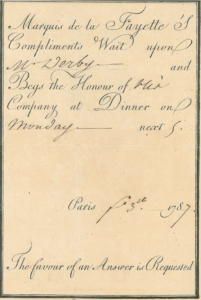 Marquis de la Fayette S
Compliments Wait upon
Mr Derby — and
Begs the Honour of his
Company at Dinner on
Monday — next 5.
Paris 3d 1787.
The favour of an Answer is Requested